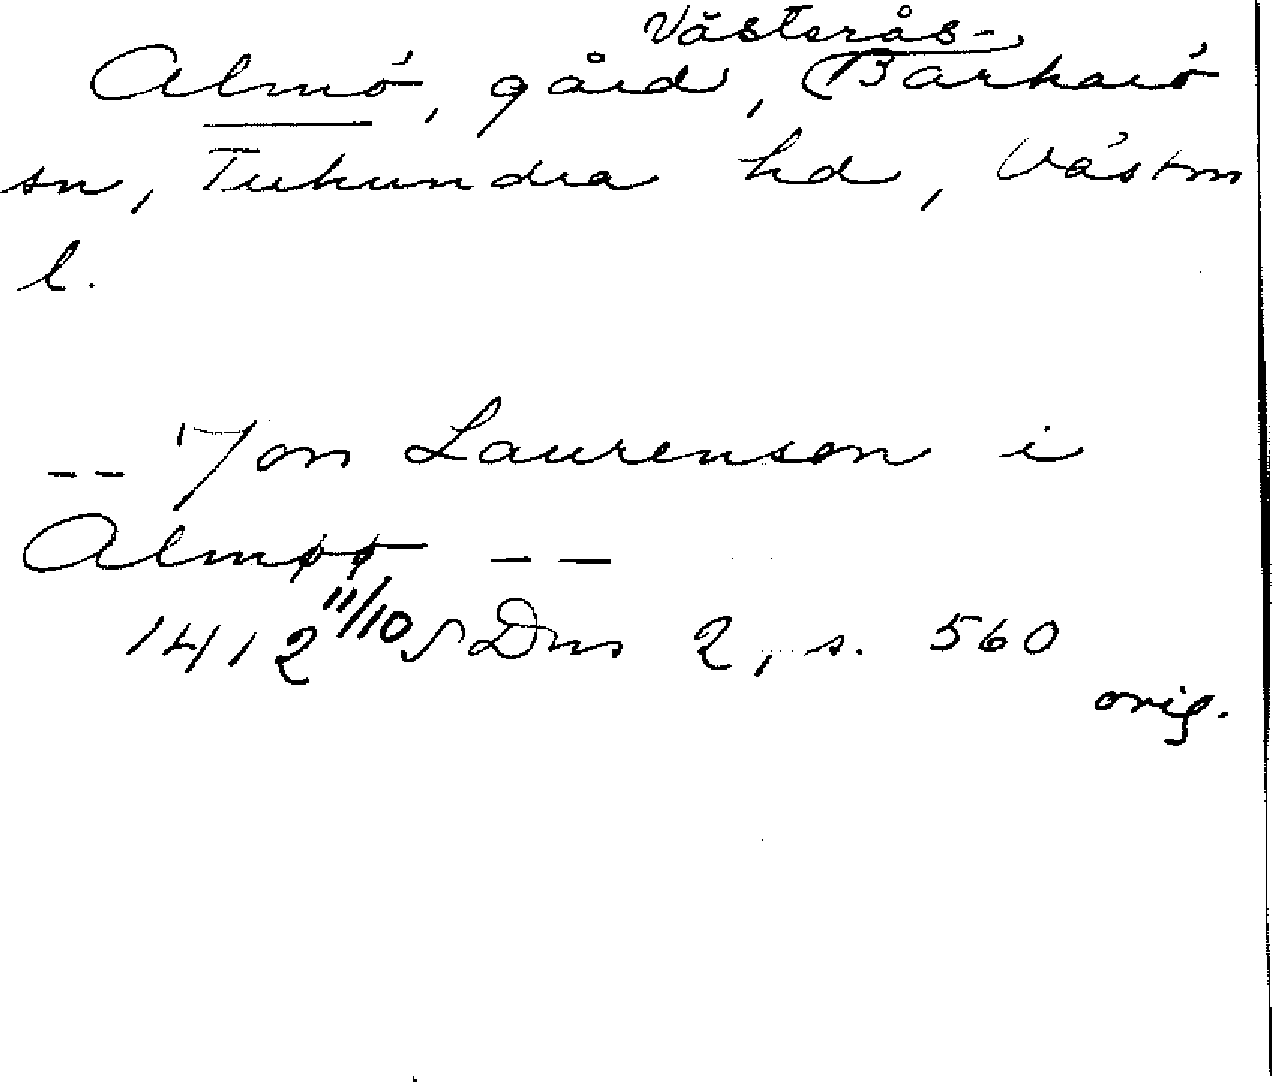 Västerås-
Almö, gård, Barkarö
sn, Tuhundra hd, Västm
l.
-- Jon Laurenson i
Almøø --
1412 11/10 SDns 2, s. 560
orig.